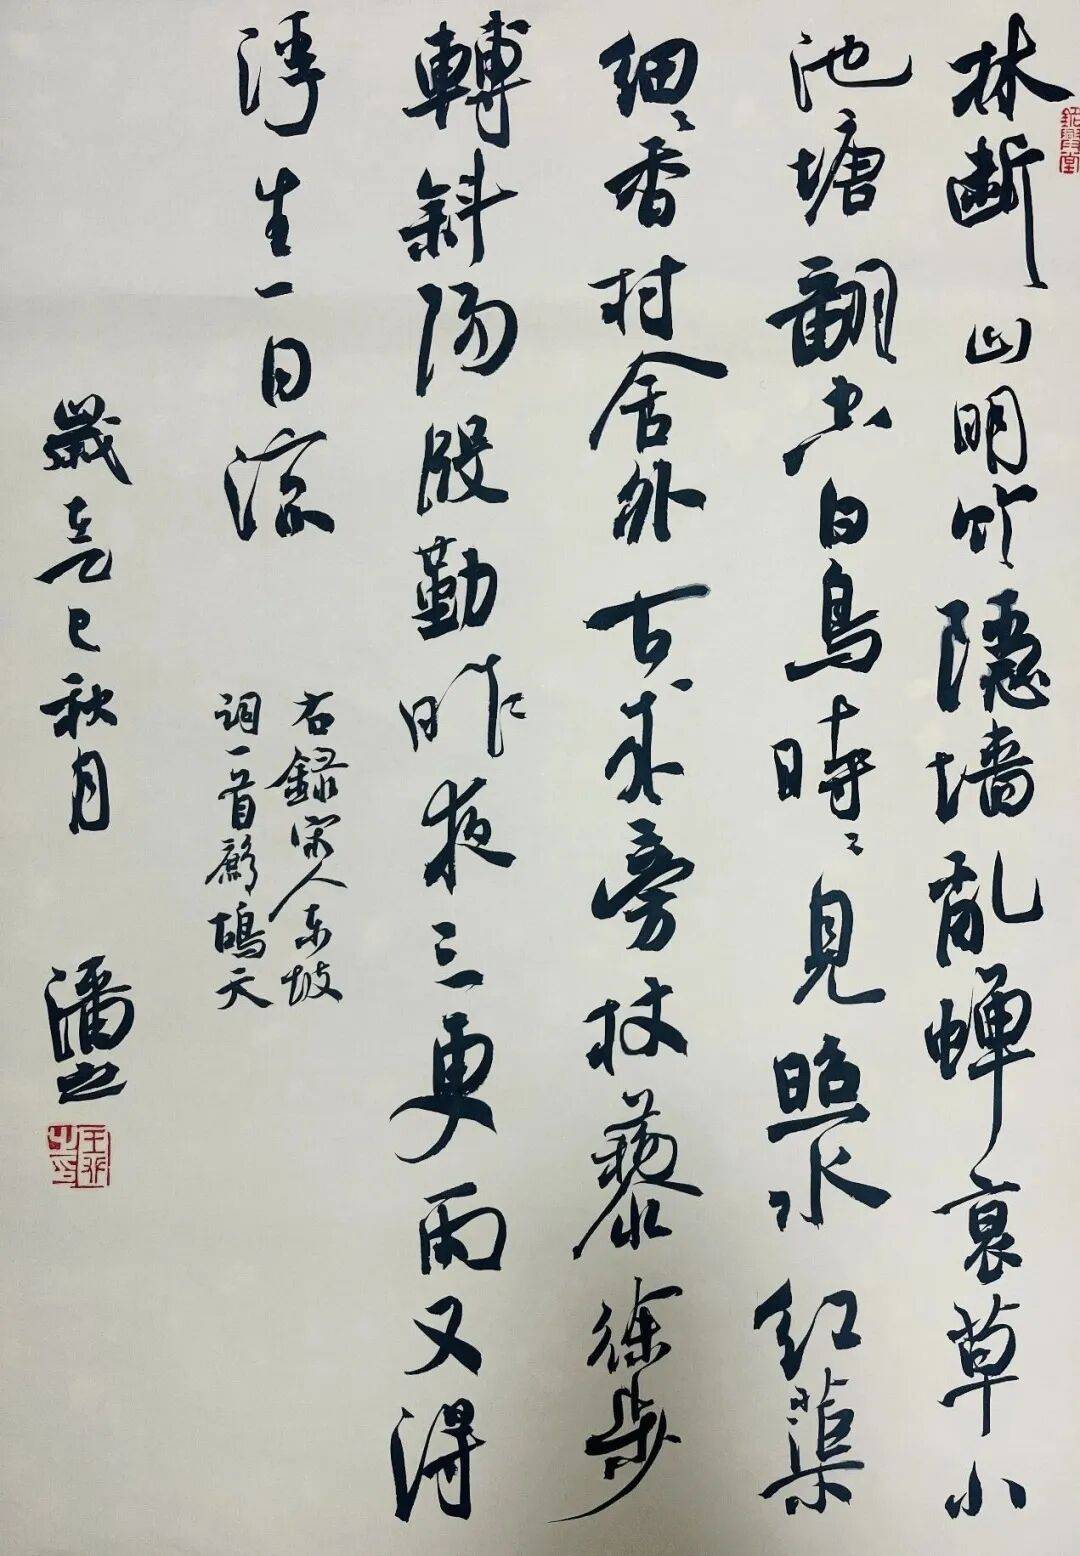 林斷山明竹隱墙亂蟬衰草小
池塘翻空白鳥時〻見照水紅蕖
細〻香村舍外古城旁杖藜徐步
轉斜陽殷勤昨夜三更雨又得
浮生一日涼
右錄宋人東坡
詞一首鷓鴣天
歲在乙巳秋月 潘